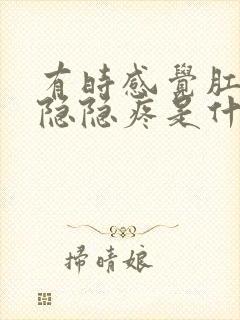 有時感覺肛
隐隐疼是什
掃晴娘